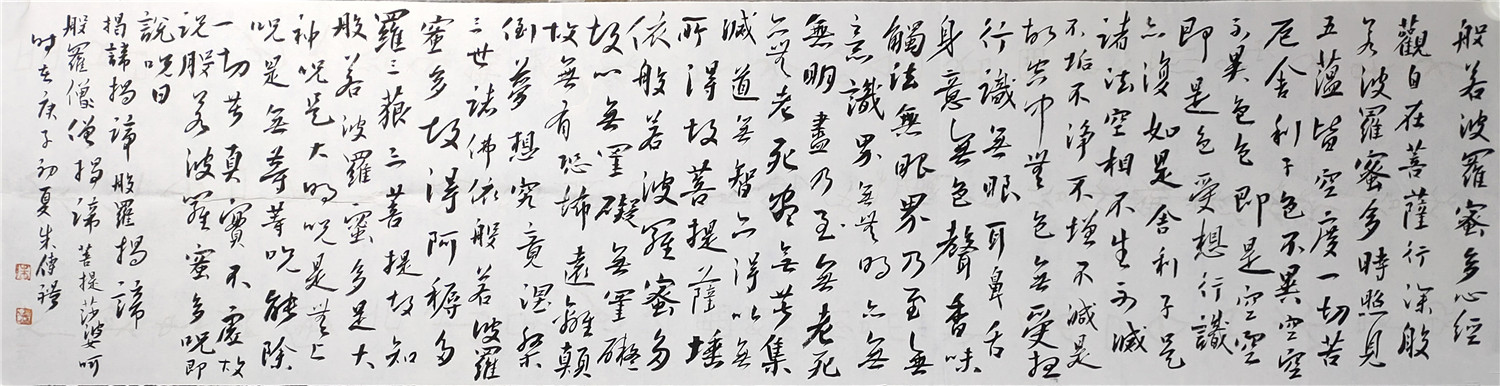 般若波羅蜜多心經
觀自在菩薩行深般
若波羅蜜多時照見
五蘊皆空度一切苦
厄舍利子色不異空空
不異色色即是空空
即是色受想行識
亦復如是舍利子是
諸法空相不生不滅
不垢不淨不增不減是
故空中無色無受想
行識無眼耳鼻舌
身意無色聲香味
觸法無眼界乃至無
意識界無無明亦無
無明盡乃至無老死
亦無老死盡無苦集
滅道無智亦得以無
所得故菩提薩埵
依般若波羅蜜多
故心無罣礙無罣礙
故無有恐怖遠離顛
倒夢想究竟涅槃
三世諸佛依般若波羅
蜜多故得阿耨多
羅三藐三菩提故知
般若波羅蜜多是大
神咒是大明咒是無上
咒是無等等咒能除
一切苦真實不虛故
說般若波羅蜜多咒即
說咒曰
揭諦揭諦般羅揭諦
般羅僧僧揭諦菩提莎婆呵
時在庚子初夏朱傳